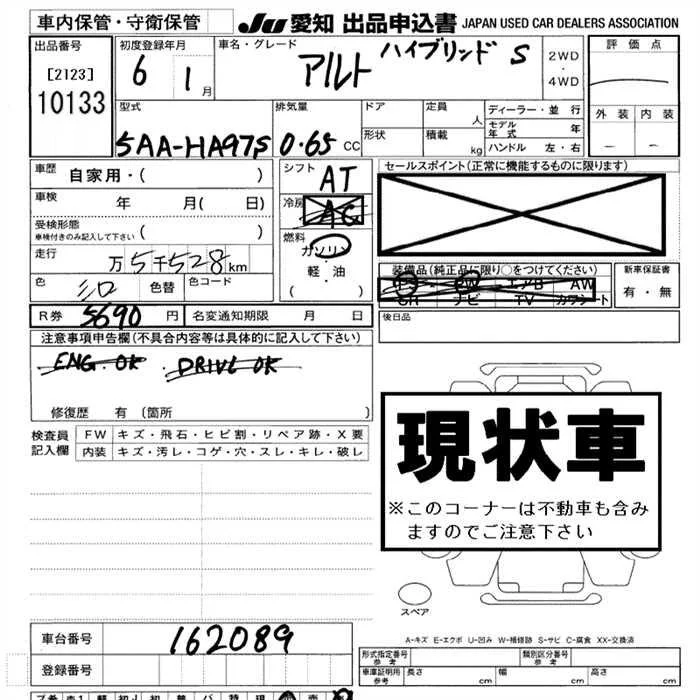 車内保管・守衛保管
JU 愛知 出品申込書 JAPAN USED CAR DEALERS ASSOCIATION
出品番号
[2123]
10133
初度登録年月
6 1月
車名・グレード
アルト ハイブリッド S
2WD
・
4WD
評価点
外装 内装
型式
5AA-HA97S
排気量
0.65 CC
ドア
形状
定員 人
積載 kg
ディーラー・並行
モデル年式 年
ハンドル 左・右
車歴
自家用・( )
車検 年 月( 日)
受検形態
車検付きのみ記入して下さい ( )
走行
万5千528km
色
シロ
色替
色コード
シフト
AT
冷房
AC
燃料
ガソリン
・
軽・油
( )
セールスポイント(正常に機能するものに限ります)
装備品(純正品に限り○をつけてください)
PS PW エアB AW
SR ナビ TV カワシート
新車保証書
有・無
後日品
R券 5690 円
名変通知期限 月 日
注意事項申告欄(不具合内容等は具体的に記入して下さい)
ENG OK DRIVE OK
修復歴 有(箇所 )
検査員
記入欄
FW キズ・飛石・ヒビ割・リペア跡・X要
内装 キズ・汚レ・コゲ・穴・スレ・キレ・破レ
現状車
※このコーナーは不動車も含み
ますのでご注意下さい
スペア
A-キズ E-エクボ U-凹み W-補修跡 S-サビ C-腐食 XX-交換済
車台番号
162089
登録番号
形式指定番号
参考
類別区分番号
参考
車庫証明用
参考
長さ cm
幅 cm
高さ cm